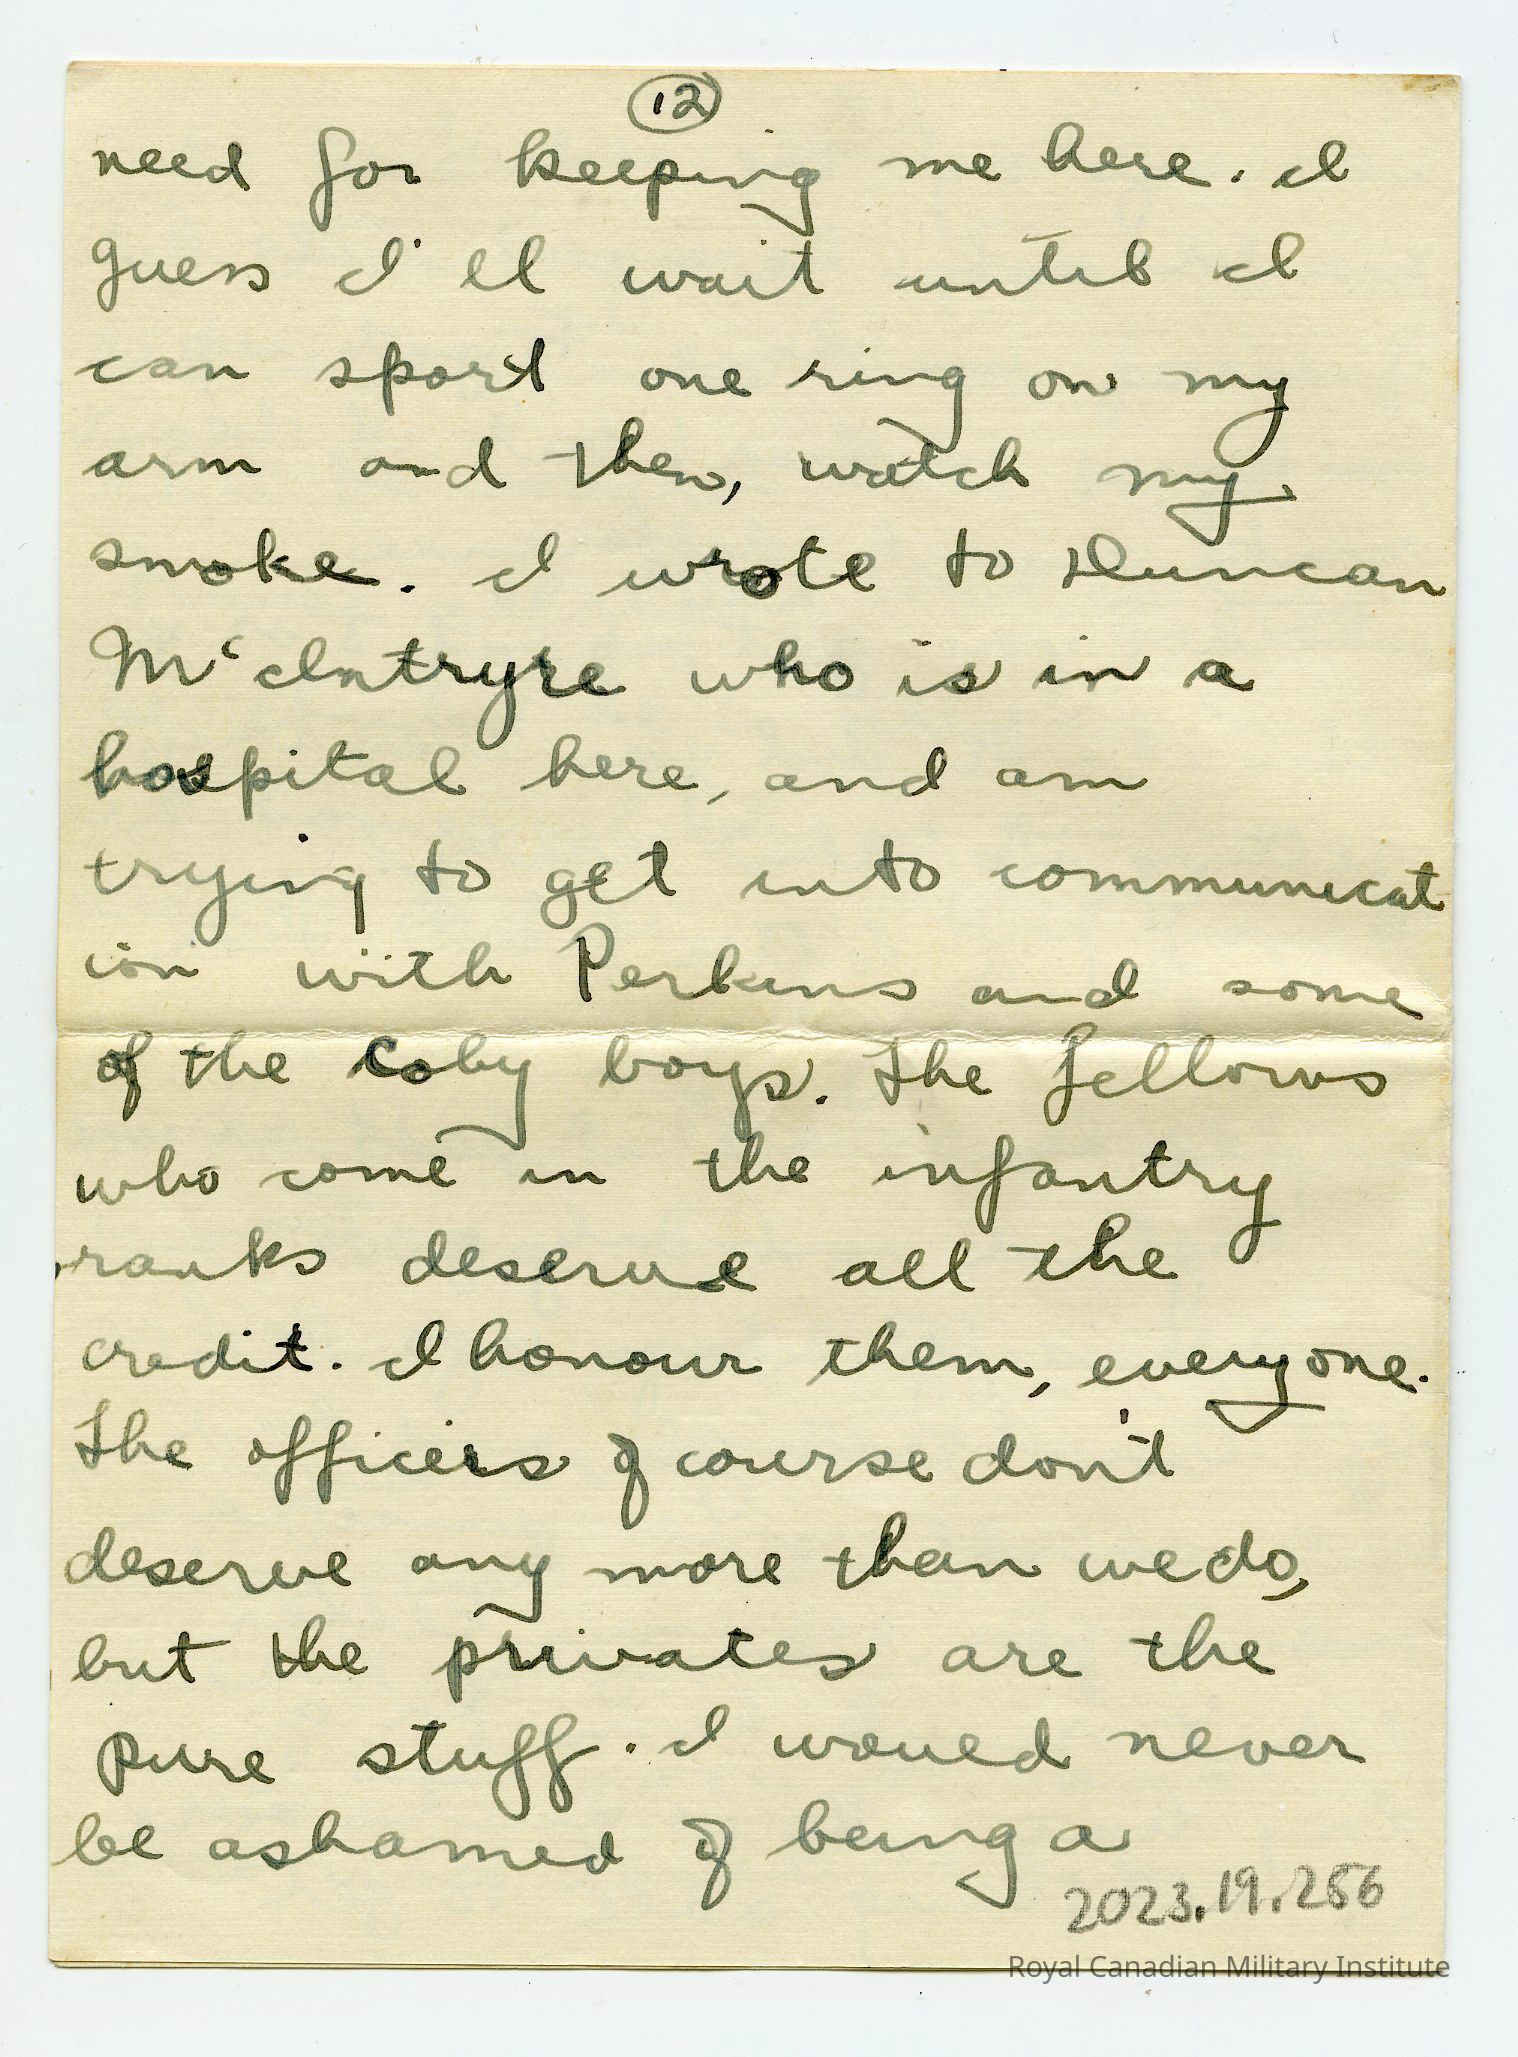 12
need for keeping me here. I
guess I'll wait until I
can sport one ring on my
arm and then, watch my
smoke. I wrote to Duncan
McIntryre who is in a
hospital here, and am
trying to get into communicat
ion with Perkins and some
of the Coby boys. The fellows
who come in the infantry
ranks deserve all the
credit. I honour them, everyone.
The officers of course don't
deserve any more than we do,
but the privates are the
pure stuff. I would never
be ashamed of being a
2023.19.256
Royal Canadian Military Institute